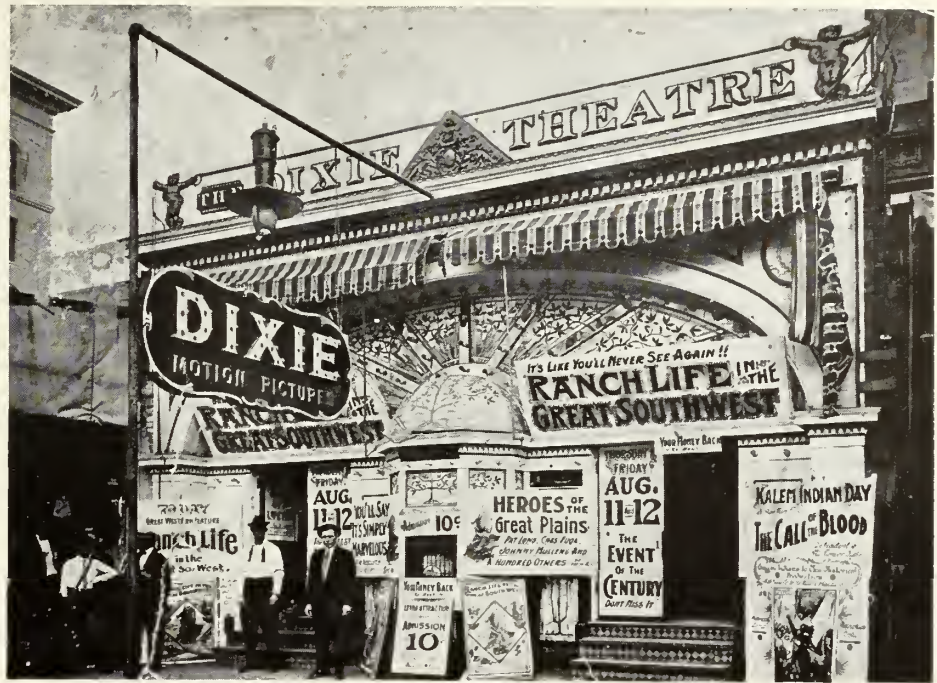 THE DIXIE THEATRE
DIXIE
MOTION PICTURE
RANCH
IN THE
GREAT SOUTHWEST
IT'S LIKE YOU'LL NEVER SEE AGAIN!!
RANCH LIFE IN THE
GREAT SOUTHWEST
YOUR MONEY BACK
TODAY
GREAT WESTERN FEATURE
Ranch Life
in the
So. West.
FRIDAY
AUG.
11-12
YOU'LL SAY
IT'S SIMPLY
MARVELOUS
Admission 10¢
HEROES OF THE
Great Plains
JOHNNY MULLENS AND
A HUNDRED OTHERS
THURSDAY
FRIDAY
AUG.
11-12
THE
EVENT
OF THE
CENTURY
DON'T MISS IT
KALEM INDIAN DAY
THE CALL OF THE BLOOD
YOUR MONEY BACK
EXTRA ATTRACTION
ADMISSION
10